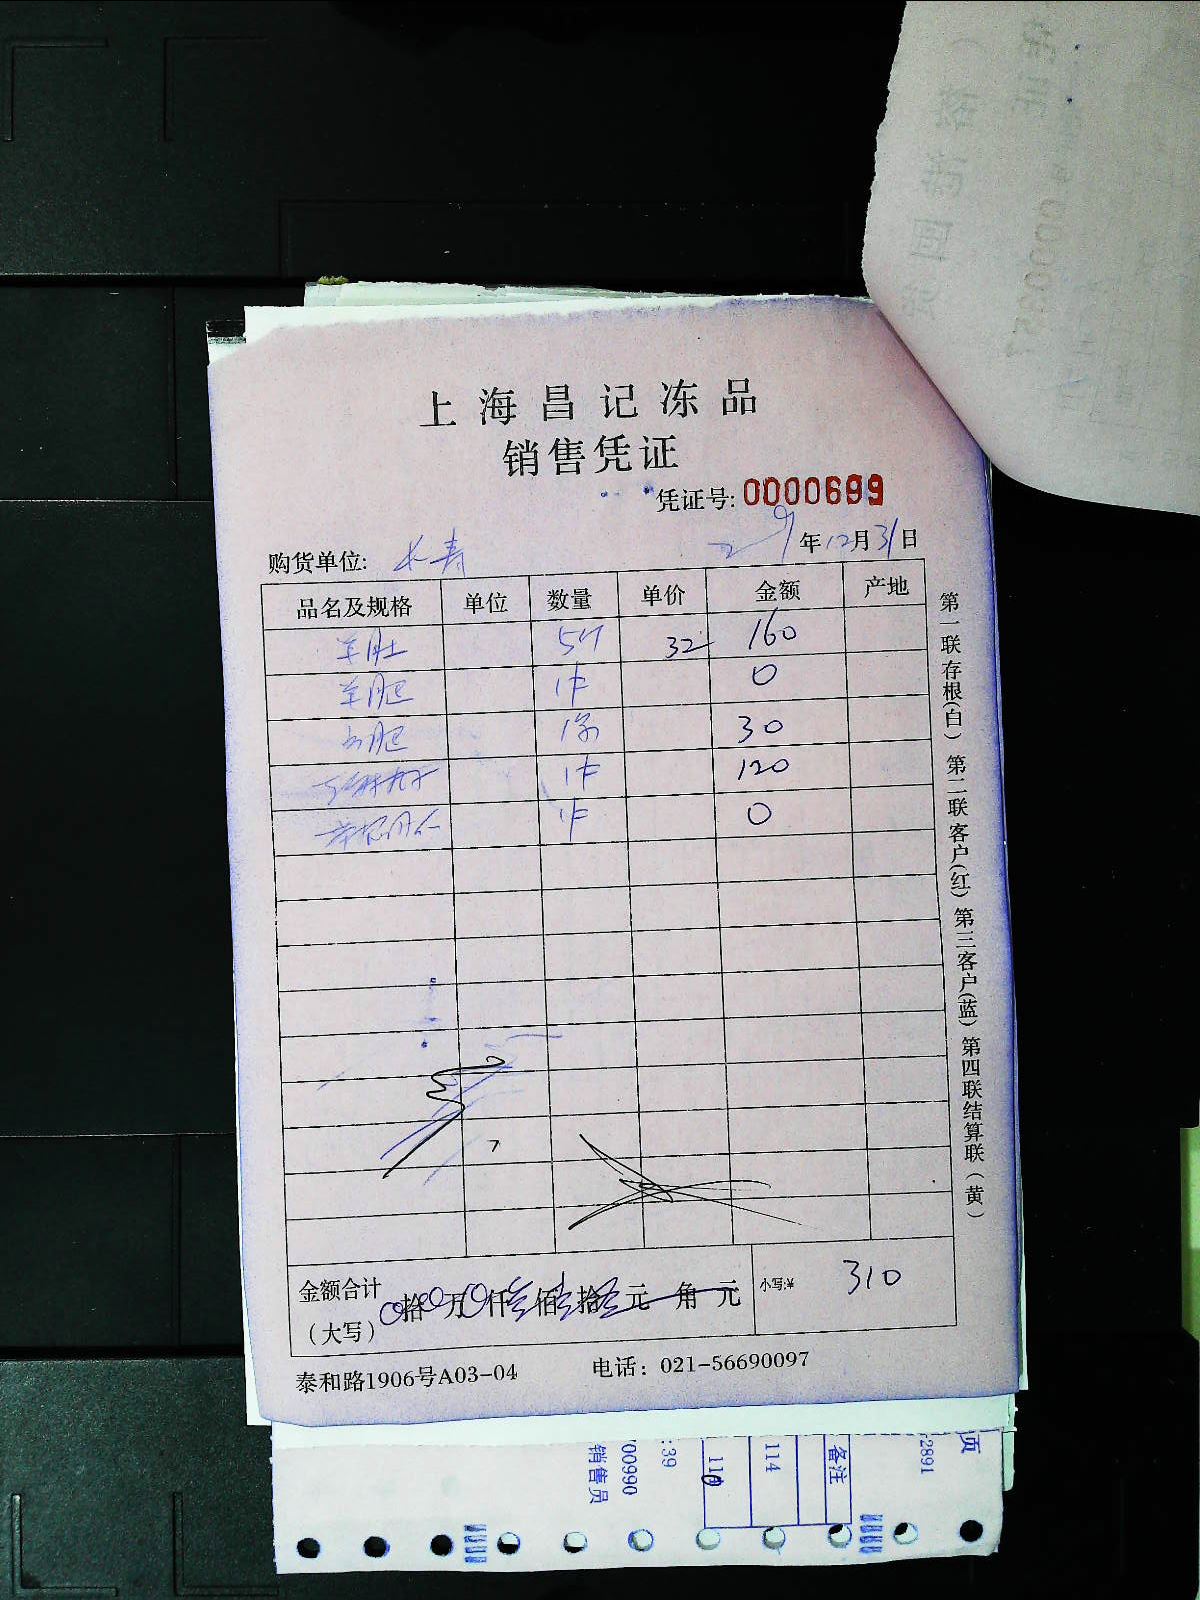 上海昌记冻品
销售凭证
凭证号: 0000699
购货单位: 长寿 年12月31日
品名及规格 单位 数量 单价 金额 产地
羊肚 5斤 32 160
羊肥 1件 0
肥 30
1件 120
1件 0
金额合计
(大写) 0拾0万0仟叁佰壹拾零元 角 元 小写:¥ 310
泰和路1906号A03-04 电话: 021-56690097
第一联存根(白) 第二联客户(红) 第三客户(蓝) 第四联结算联(黄)
页
2891
备注
114
110
:39
00990
销售员